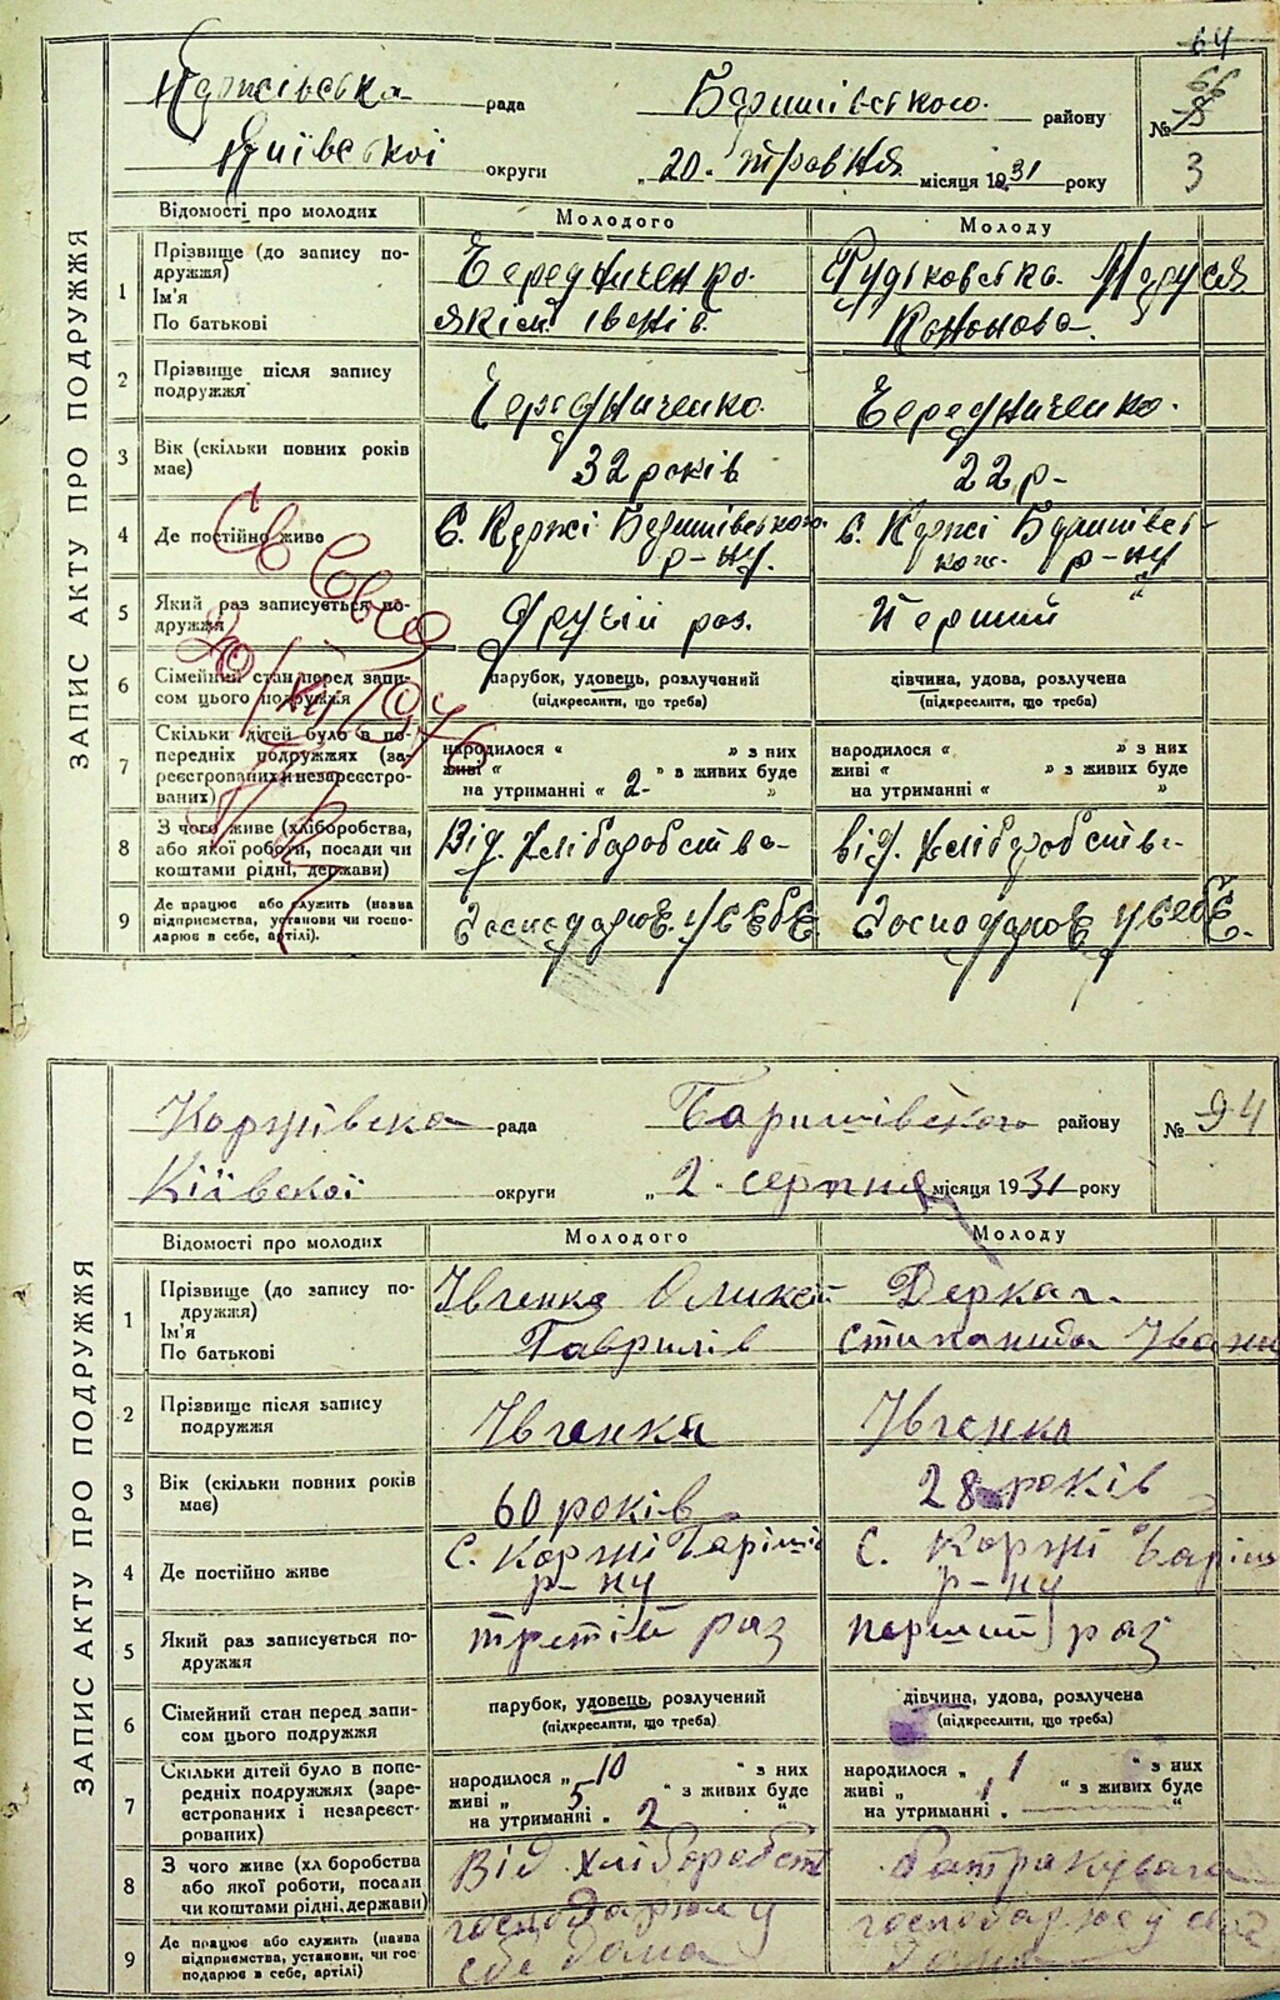 64
66
Коржівська рада Баришівського району №
Київської округи „20" травня місяця 1931 року 3
ЗАПИС АКТУ ПРО ПОДРУЖЖЯ
Відомості про молодих Молодого Молоду
1 Прізвище (до запису подружжя) Ім'я По батькові
Чередниченко Яким Іванів.
Рудьковська Маруся Кононова
2 Прізвище після запису подружжя
Чередниченко. Чередниченко.
3 Вік (скільки повних років має)
32 років 22 р-
4 Де постійно живе
С. Коржі Баришівського р-ну. С. Коржі Баришівського р-ну
5 Який раз записується подружжя
другий раз. Перший
6 Сімейний стан перед записом цього подружжя
парубок, удовець, розлучений дівчина, удова, розлучена
(підкреслити, що треба) (підкреслити, що треба)
7 Скільки дітей було в попередніх подружжях (зареєстрованих и незареєстрованих)
народилося „ " з них народилося „ " з них
живі „ " з живих буде живі „ " з живих буде
на утриманні „ 2- " на утриманні „ "
8 З чого живе (хліборобства, або якої роботи, посади чи коштами рідні, держави)
Від. хліборобства- від. хліборобства-
9 Де працює або служить (назва підприємства, установи чи господарює в себе, артілі).
Господарює. у себе. Господарює у себе.
Св
1946
Коржівска рада Баришівского району № 94
Київскої округи „2" серпня місяця 1931 року
ЗАПИС АКТУ ПРО ПОДРУЖЖЯ
Відомості про молодих Молодого Молоду
1 Прізвище (до запису подружжя) Ім'я По батькові
Івченко Оликсій Гаврилів
Деркач Стипанида
2 Прізвище після запису подружжя
Івченко Івченко
3 Вік (скільки повних років має)
60 років 28 років
4 Де постійно живе
С. Коржі Баріші р-ну С. Коржі Баріш р-ну
5 Який раз записується подружжя
третій раз перший раз
6 Сімейний стан перед записом цього подружжя
парубок, удовець, розлучений дівчина, удова, розлучена
(підкреслити, що треба) (підкреслити, що треба)
7 Скільки дітей було в попередніх подружжях (зареєстрованих і незареєстрованих)
народилося „ 10 " з них народилося „ 1 " з них
живі „ 5 " з живих буде живі „ 1 " з живих буде
на утриманні „ 2 " на утриманні „ — "
8 З чого живе (хліборобства або якої роботи, посади чи коштами рідні, держави)
Від хліборобст
9 Де працює або служить (назва підприємства, установи, чи господарює в себе, артілі)
господарює у себе дома господарює у дома